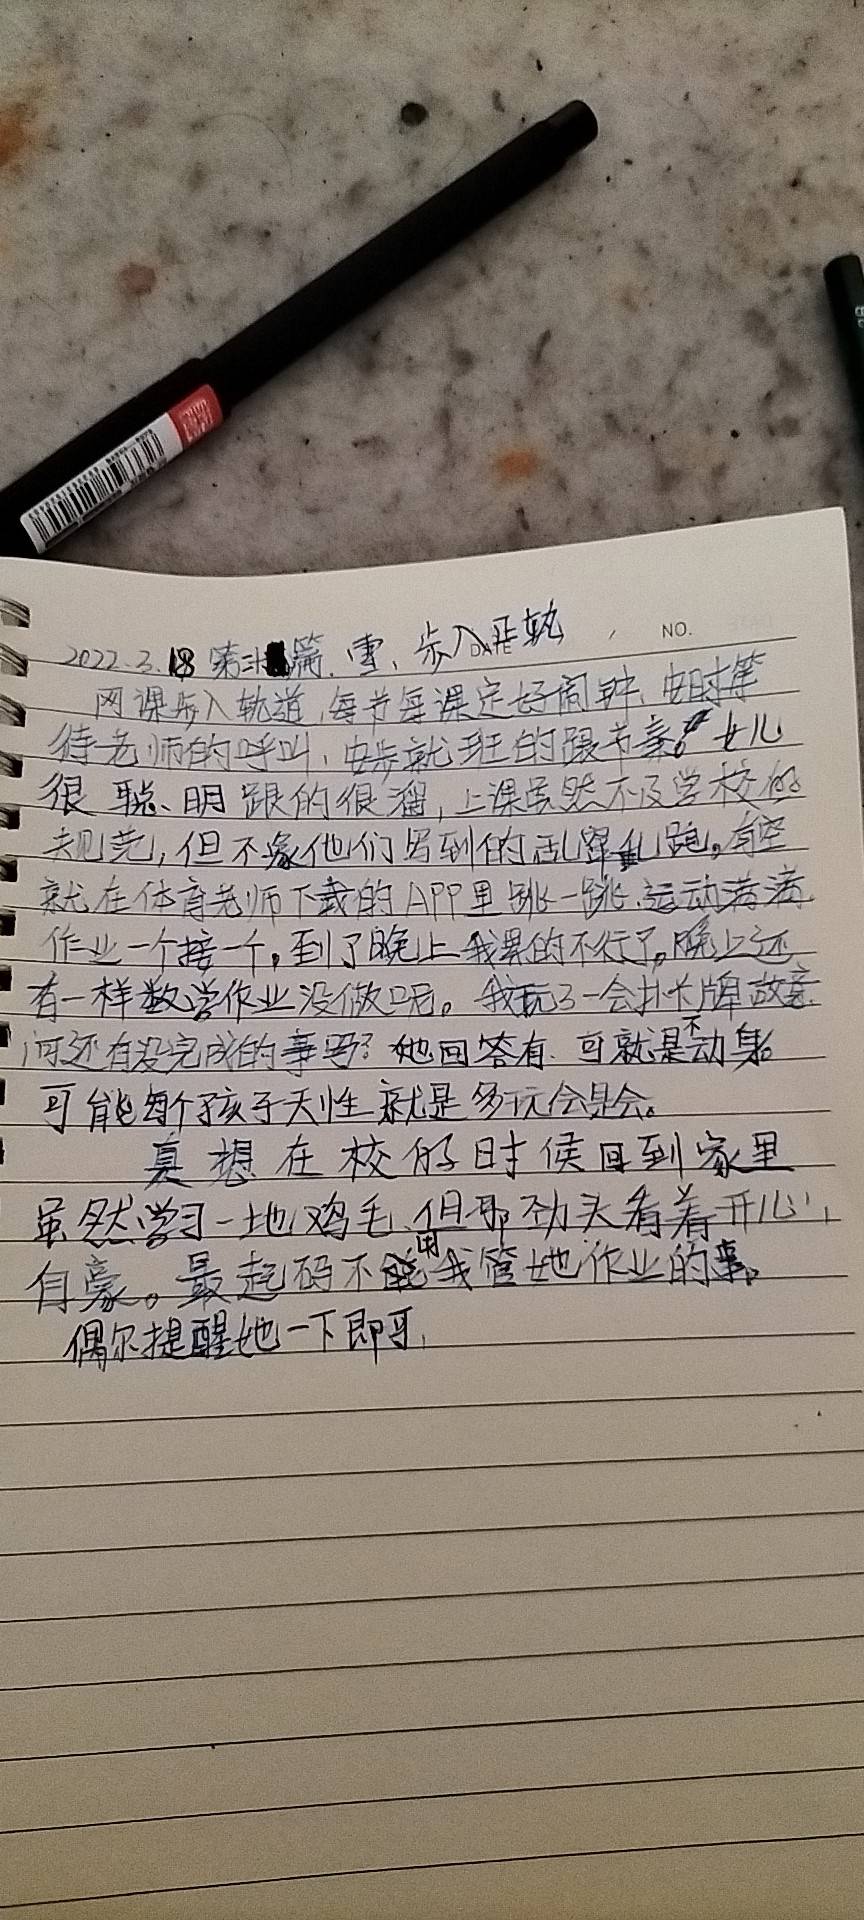 2022.3.18 第 篇. 雪、步入正轨
DATE
NO.
网课步入轨道,每节每课定好闹钟、按时等
待老师的呼叫,按步就班的跟节奏。女儿
很聪、明跟的很溜,上课虽然不及学校的
规范,但不象他们写到的乱窜乱跑。有空
就在体育老师下载的APP里跳一跳、运动满满
作业一个接一个。到了晚上我累的不行了。晚上还
有一样数学作业没做呢。我玩了一会扑卡牌故意
问还有没完成的事吗?她回答有、可就是不动身。
可能每个孩子天性就是多玩会是会。
真想在校的时候回到家里
虽然学习一地鸡毛、但那劲头看着开心、
自豪。最起码不用我管她作业的事。
偶尔提醒她一下即可、